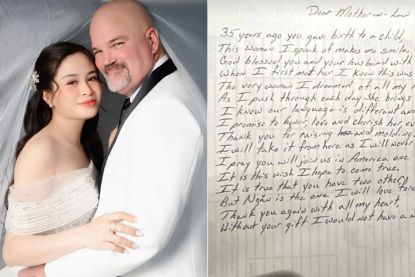 Dear Mother-n-Law
35 years ago you gave birth to a child,
This woman I speak of makes me smile.
God blessed you and your husband with
When I first met her I knew this was
The very woman I dreamed of all my
As I push through each day she
I know our language is different and
I promise to honor, love and cherish her,
Thank you for raising and molding
I will take it from here as I will
I pray you will join us in America one
It is this wish I hope to come true.
It is true that you have two other
But Ngân is the one I will love
Thank you again with all my heart,
Without your gift I would not have a